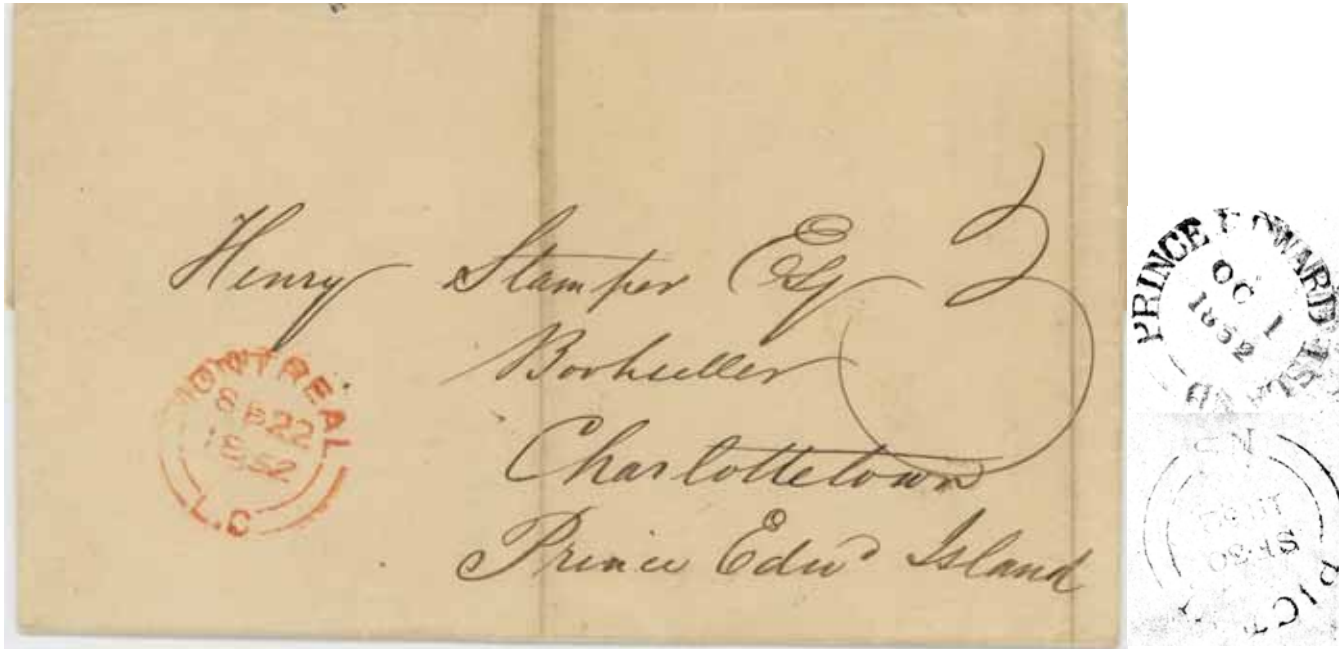 Henry Stamper Esq 3
Bookseller
Charlottetown
Prince Edwd Island
MONTREAL
SP 22
1852
L.C
PRINCE EDWARD ISLAND
OC 1
1852
N.S
SP 30
1852